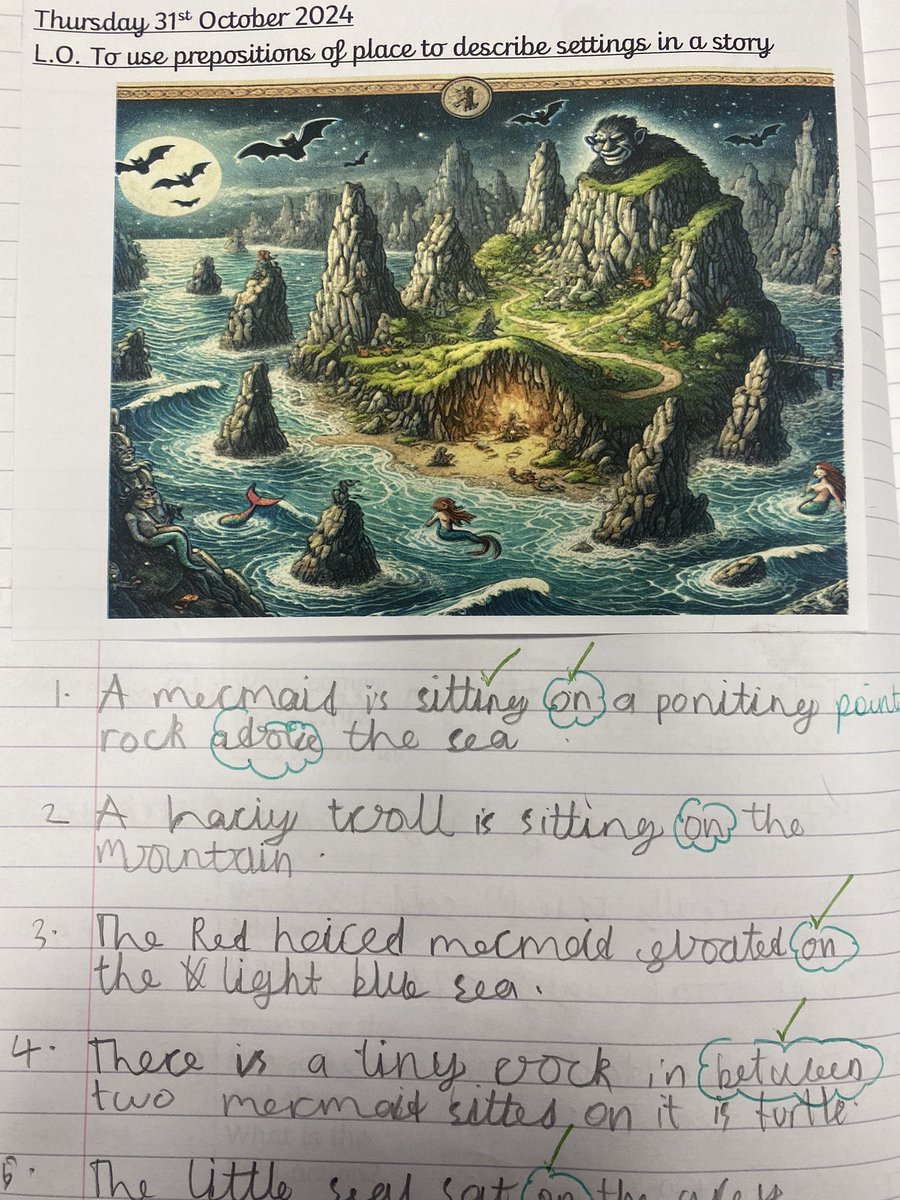 Thursday 31st October 2024
L.O. To use prepositions of place to describe settings in a story
1. A mermaid is sitting on a poniting point
rock above the sea
2 A hariy troll is sitting on the
mountain.
3. The Red haired mermaid floated on
the light blue sea.
4. There is a tiny rock in between
two mermaid sittes on it is turtle.
5. The little seal sat on the